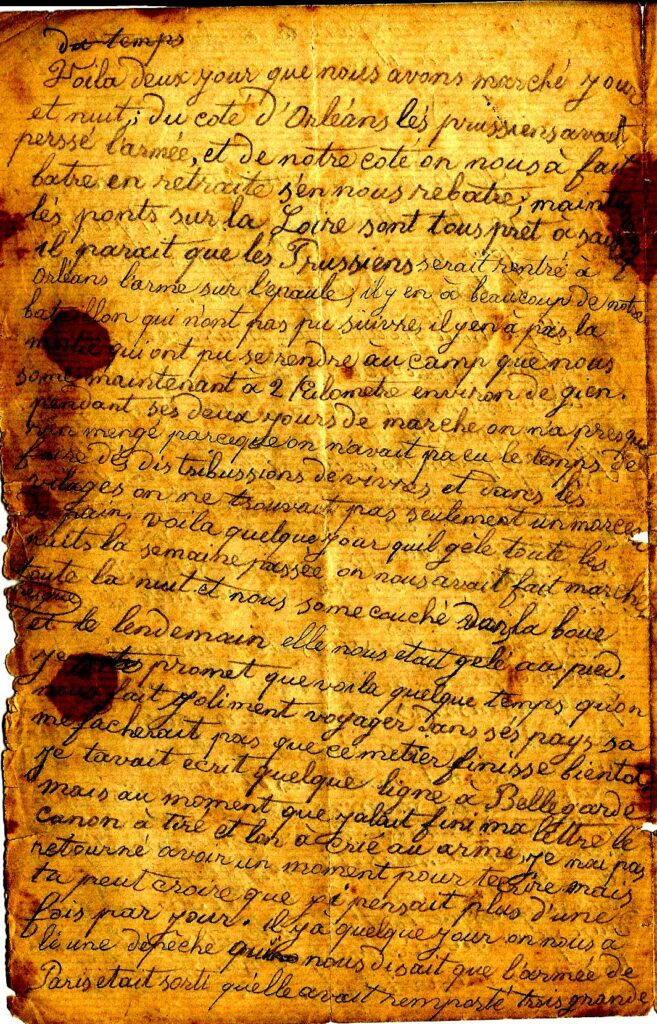 du temps
Voila deux jour que nous avons marché jour
et nuit; du coté d'Orléans lés prussiens avait
perssé l'armée, et de notre coté on nous à fait
batre en retraite s'en nous rebatre; maint
lés ponts sur la Loire sont tous prêt à
il parait que les Prussiens serait rentré à
Orléans l'arme sur l'épaule, il y en à beaucoup de notre
bataillon qui n'ont pas pu suivre, il y en à pas la
moitié qui ont pu se rendre au camp que nous
some maintenant à 2 Kilometre environ de gien.
pendant ses deux jours de marche on n'a presque
rien mengé parceque on n'avait pas eu le temps de
faire dés distribussions de vivres, et dans lés
vilages on ne trouvait pas seulement un morceau
pain, voila quelque jour quil gèle toute lés
nuits la semaine passée on nous avait fait marché
toute la nuit et nous some couché dans la boue
et le lendemain elle nous était gelé au pied.
je promet que voila quelque temps qu'on
nous fait joliment voyagér dans sés pays, sa
me facherait pas que ce métier finisse bientot
je t'avait écrit quelque ligne à Bellegarde
mais au moment que j'alait fini ma lèttre le
canon à tiré et l'on à crié au arme, je n'ai pas
retourné avoir un moment pour técrire mais
ta peut croire que j'i pensait plus d'une
fois par jour. il y à quelque jour on nous à
lu une dépêche nous disait que l'armée de
Paris etait sorti qu'elle avait remporté trois grande